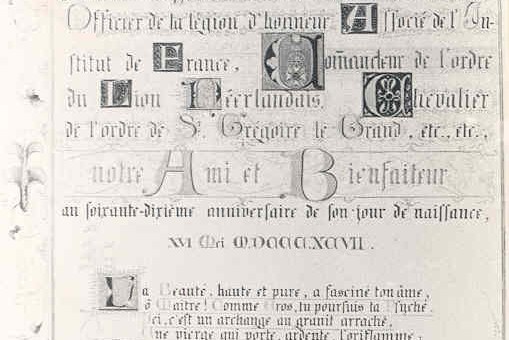 Officier de la légion d'honneur Associé de l'In-
stitut de France, Commandeur de l'ordre
du Lion Néerlandais, Chevalier
de l'ordre de St. Grégoire le Grand, etc., etc.,
notre Ami et Bienfaiteur
au soixante-dixième anniversaire de son jour de naissance,
XVI Mei M.DCCCXCVII.
La Beauté, haute et pure, a fasciné ton âme,
ô Maître! Comme Eros, tu poursuis ta Psyché.
Ici, c'est un archange au granit arraché,
Une vierge qui porte, ardente, l'oriflamme,